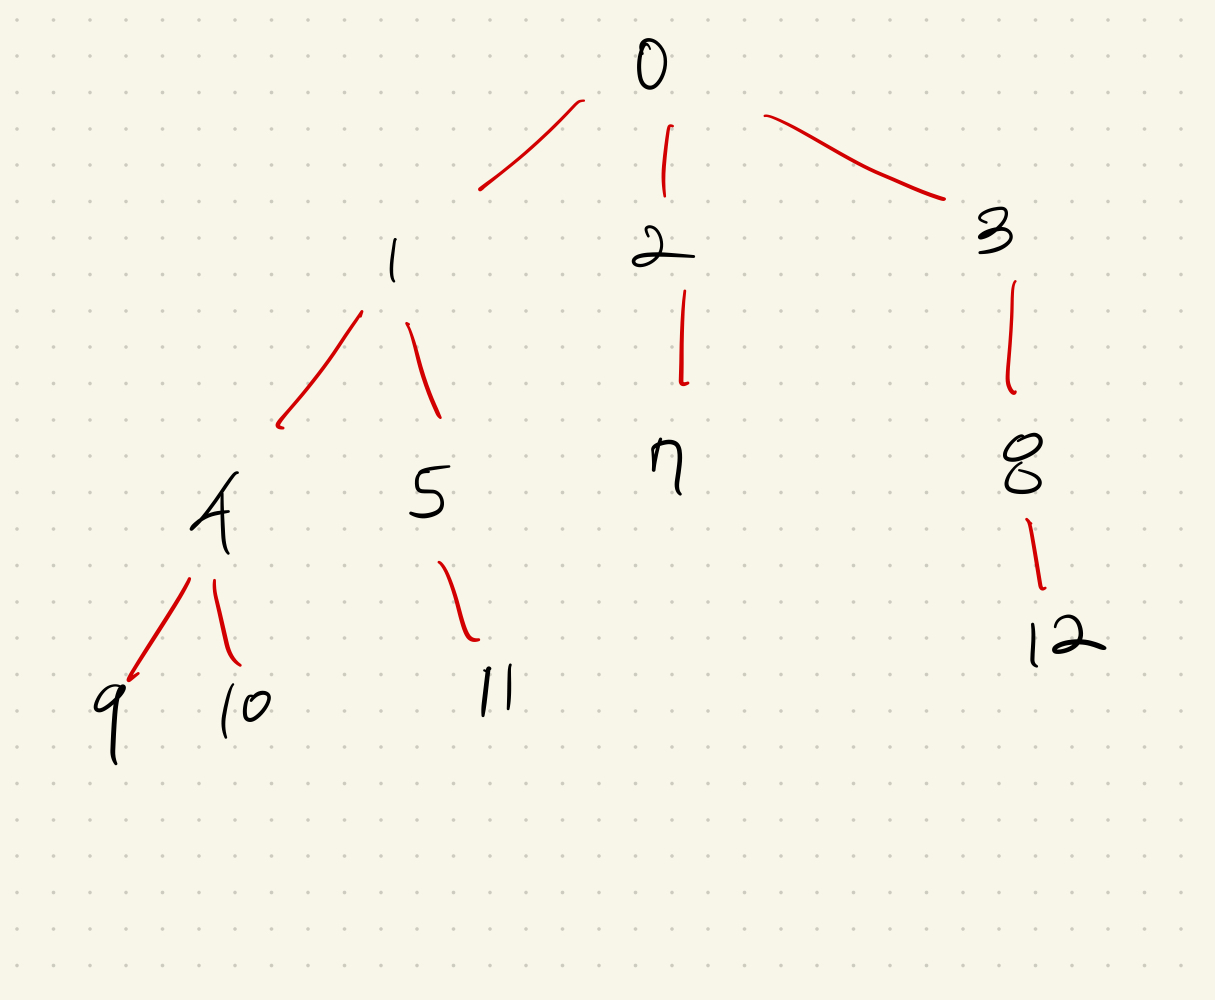 0
1 2 3
4 5 7 8
9 10 11 12